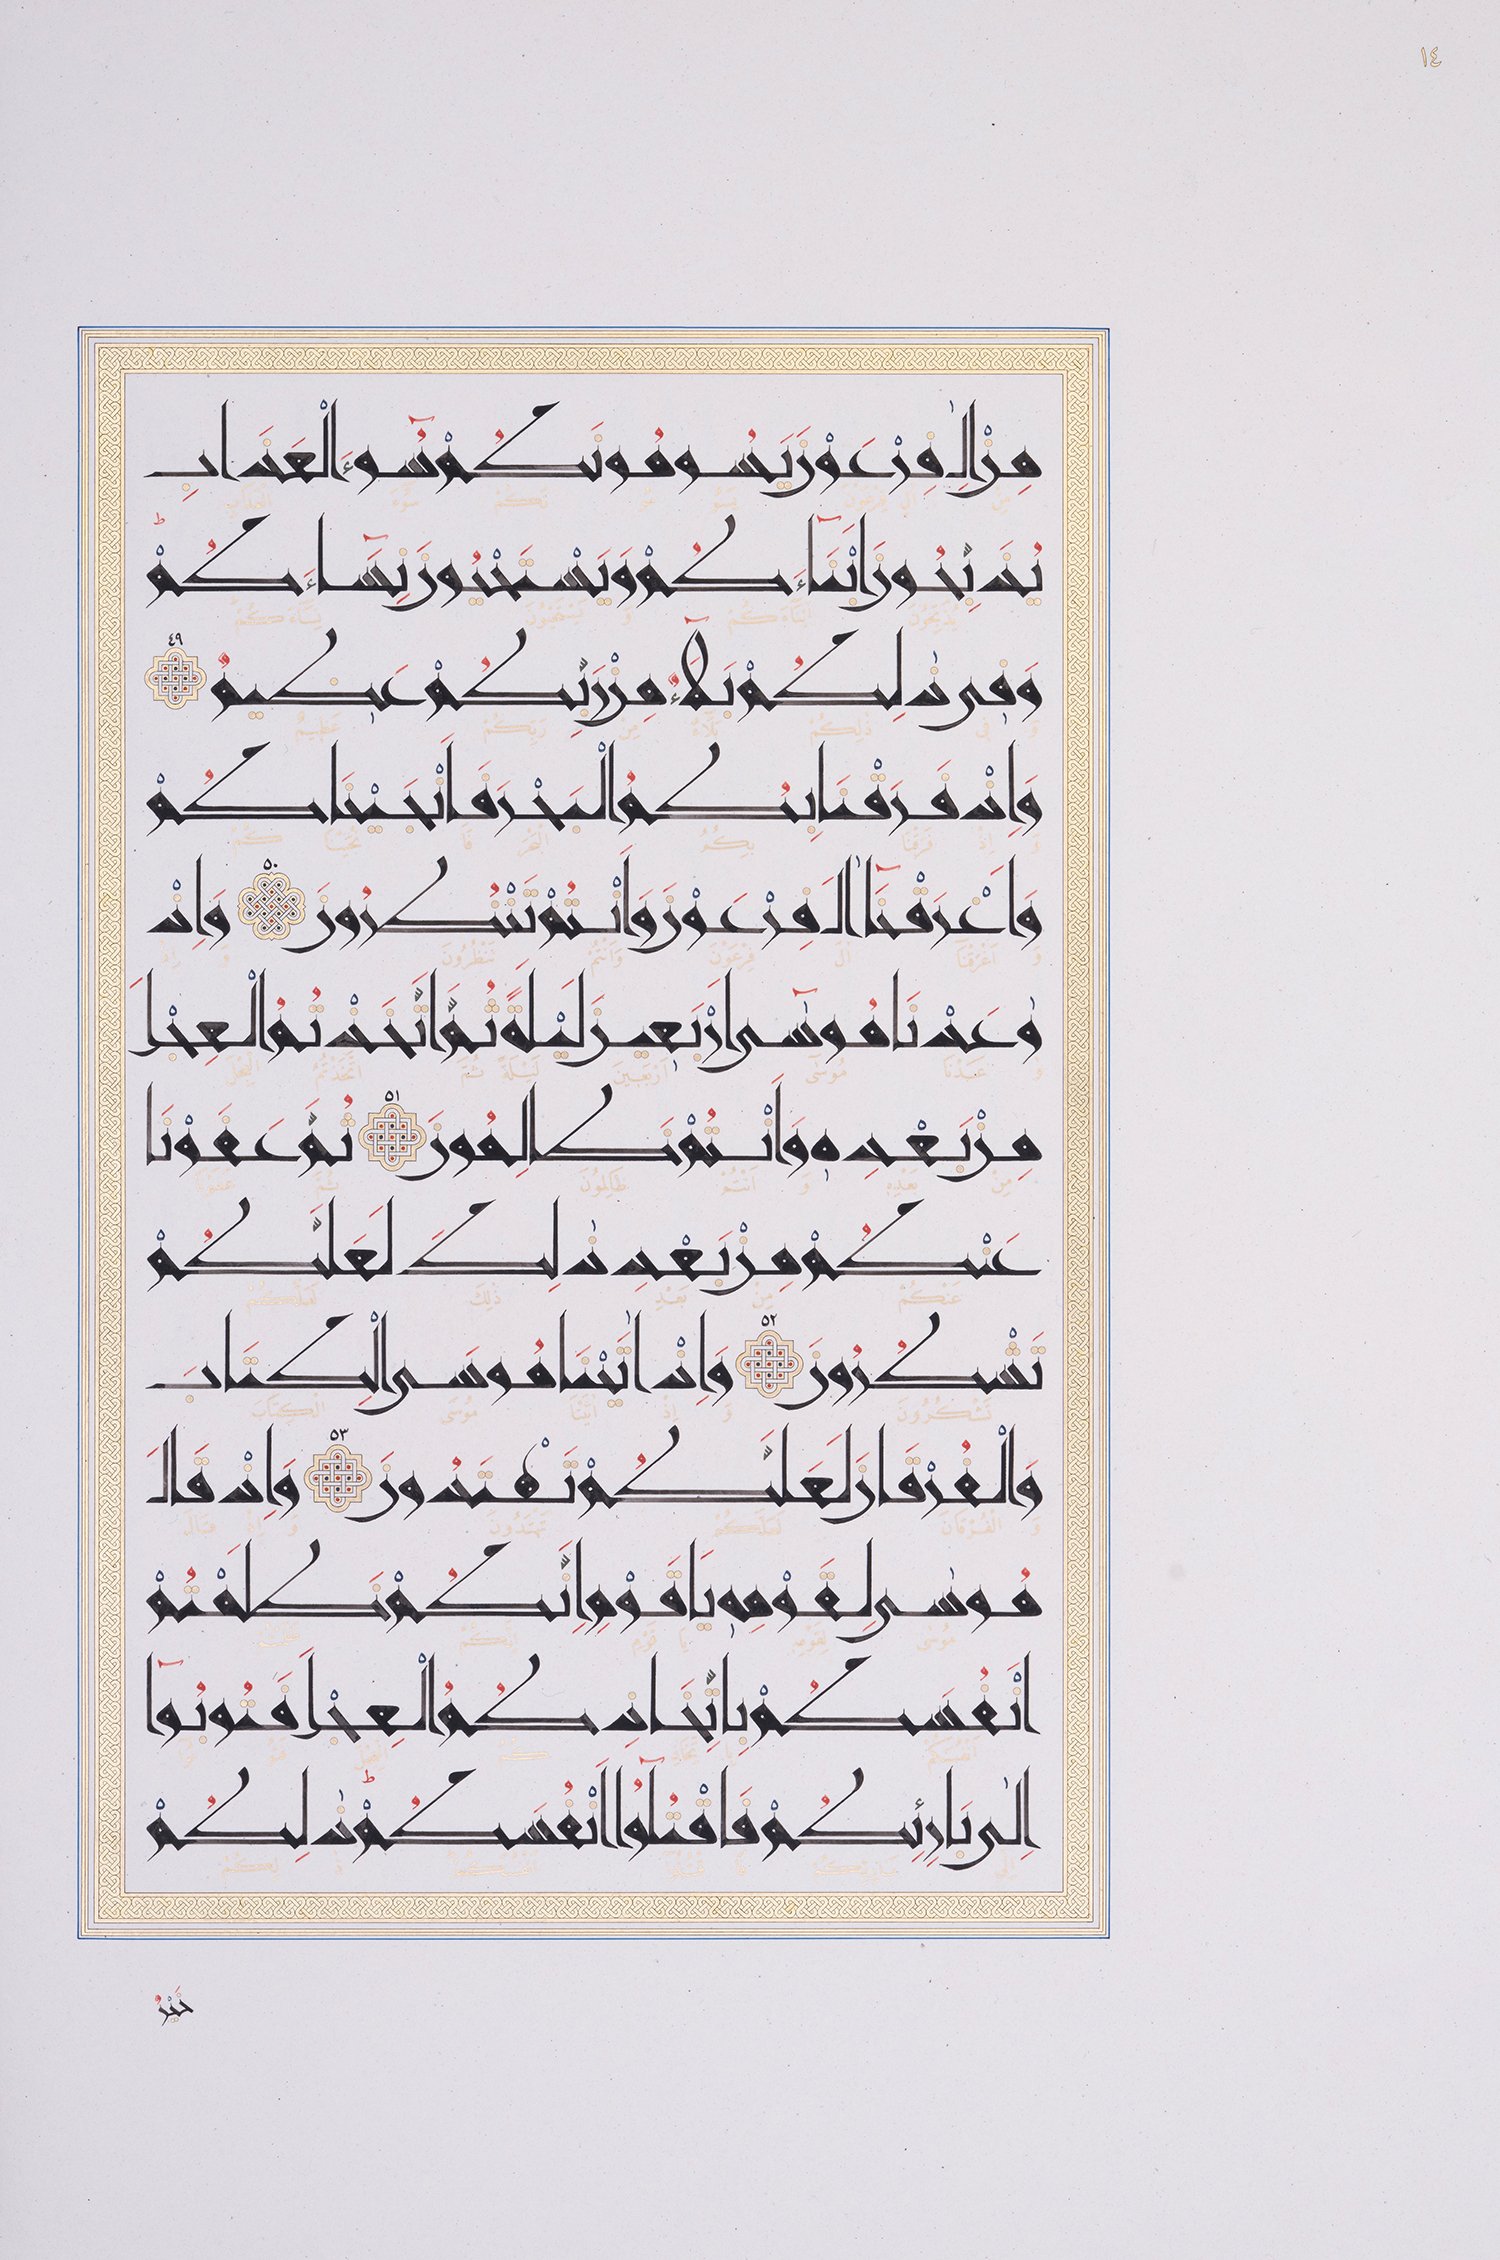 ١٤
مِنْ اٰلِ فِرْعَوْنَ يَسُومُونَكُمْ سُٓوءَ الْعَذَابِ
يُذَبِّحُونَ اَبْنَٓاءَكُمْ وَيَسْتَحْيُونَ نِسَٓاءَكُمْؕ
وَفٖى ذٰلِكُمْ بَلَٓاءٌ مِنْ رَبِّكُمْ عَظٖيمٌ ٤٩
وَاِذْ فَرَقْنَا بِكُمُ الْبَحْرَ فَاَنْجَيْنَاكُمْ
وَاَغْرَقْنَٓا اٰلَ فِرْعَوْنَ وَاَنْتُمْ تَنْظُرُونَ ٥٠ وَاِذْ
وٰعَدْنَا مُوسٰٓى اَرْبَعٖينَ لَيْلَةً ثُمَّ اتَّخَذْتُمُ الْعِجْلَ
مِنْ بَعْدِهٖ وَاَنْتُمْ ظَالِمُونَ ٥١ ثُمَّ عَفَوْنَا
عَنْكُمْ مِنْ بَعْدِ ذٰلِكَ لَعَلَّكُمْ
تَشْكُرُونَ ٥٢ وَاِذْ اٰتَيْنَا مُوسَى الْكِتَابَ
وَالْفُرْقَانَ لَعَلَّكُمْ تَهْتَدُونَ ٥٣ وَاِذْ قَالَ
مُوسٰى لِقَوْمِهٖ يَا قَوْمِ اِنَّكُمْ ظَلَمْتُمْ
اَنْفُسَكُمْ بِاتِّخَاذِكُمُ الْعِجْلَ فَتُوبُٓوا
اِلٰى بَارِئِكُمْ فَاقْتُلُٓوا اَنْفُسَكُمْؕ ذٰلِكُمْ
خَيْرٌ